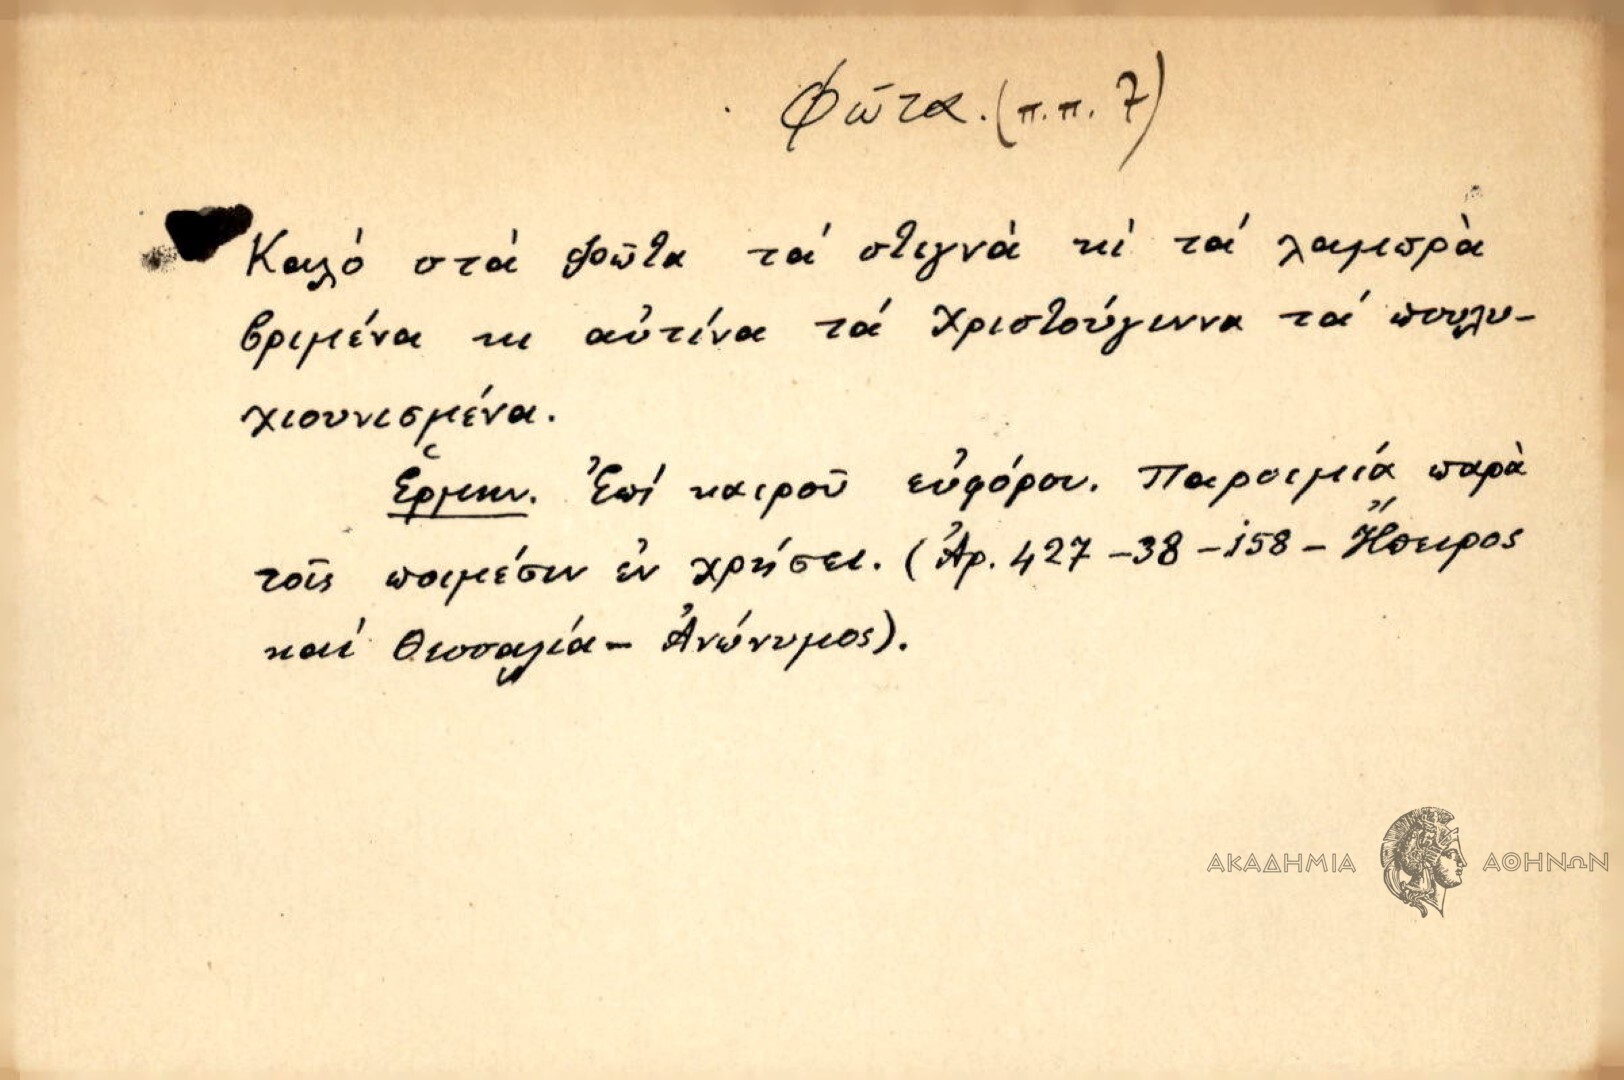 Φῶτα. (π.π. 7)
Καλό στά Φῶτα τά στεγνά κί τά λαμπρὰ
βριμένα κι αὐτίνα τά Χριστούγιννα τά πουλυ-
χιουνισμένα.
Ἑρμην. Ἐπί καιροῦ εὐφόρου. Παροιμία παρὰ
τοῖς ποιμέσιν ἐν χρήσει. (Ἀρ. 427-38-158- Ἤπειρος
καί Θεσσαλία- Ἀνώνυμος).
ΑΚΑΔΗΜΙΑ ΑΘΗΝΩΝ